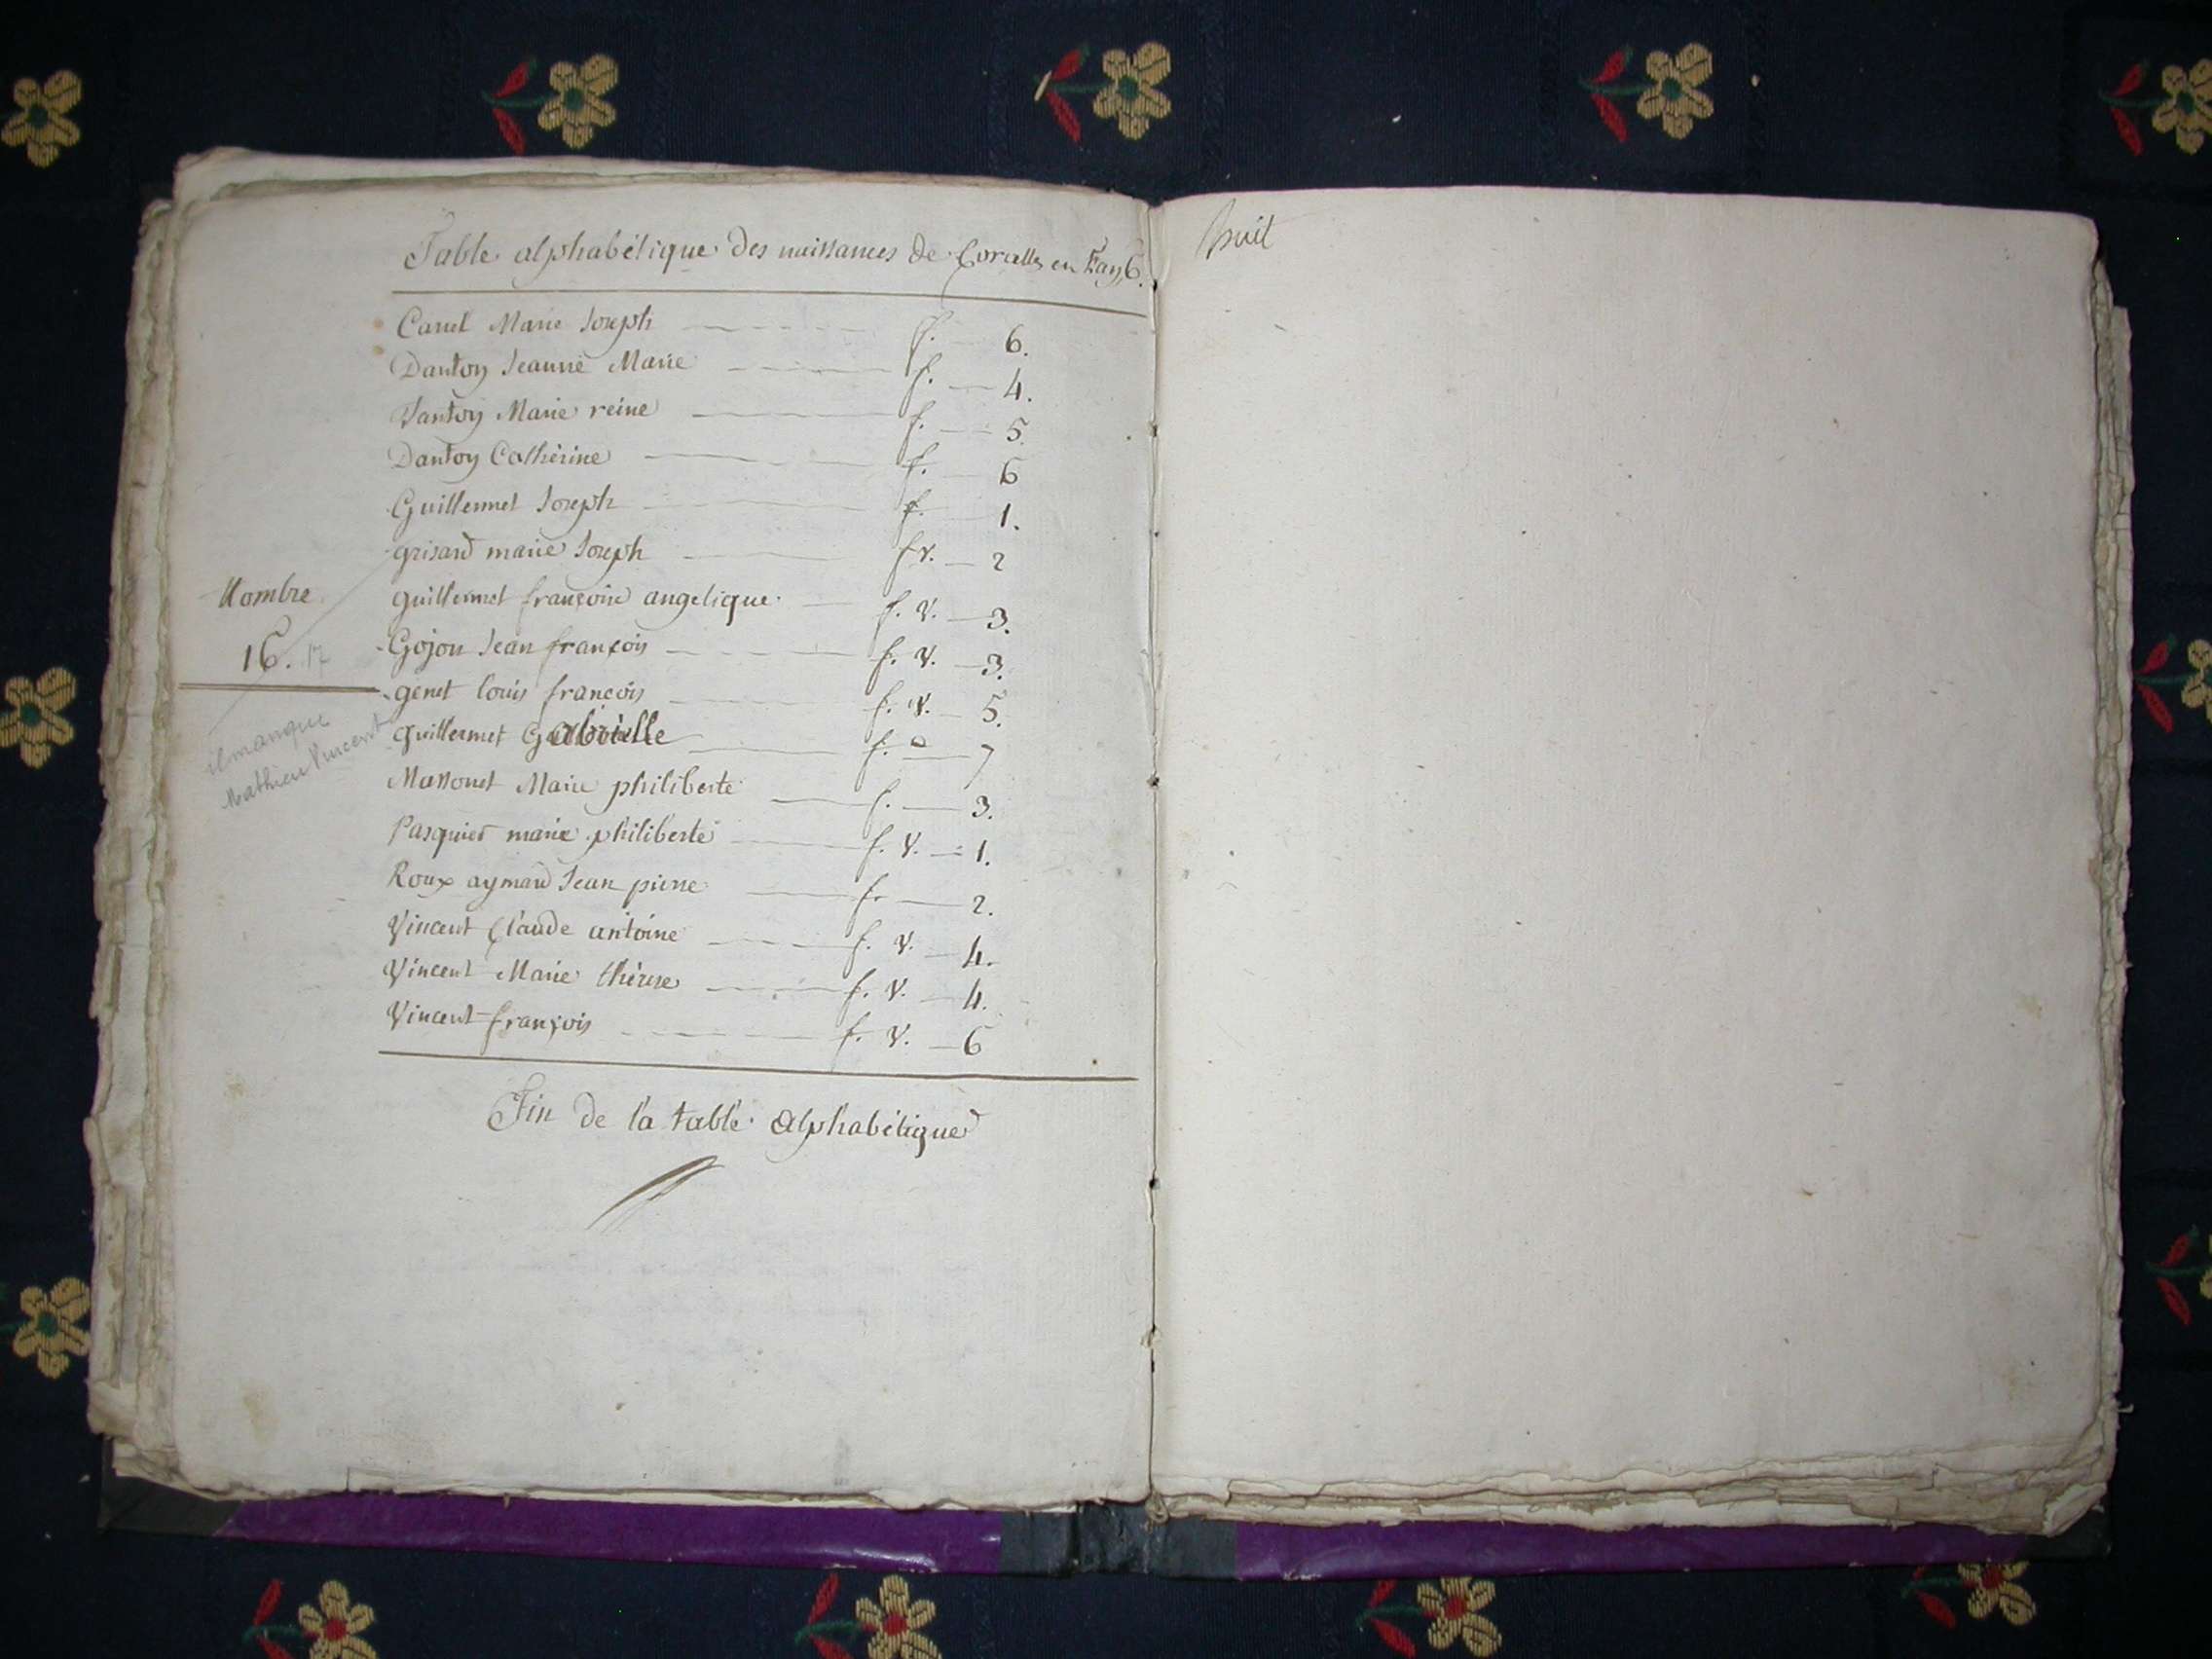 Table alphabétique des naissances de Corcelles en l'an 6.
Canet Marie Joseph f. 6.
Danton Jeanne Marie f. 4.
Danton Marie reine f. 5.
Danton Catherine f. 6
Guillermet Joseph f. 1.
grisard marie Joseph f v. 2
guillermet françoise angelique f. v. 3.
Gojon Jean françois f. v. 3.
genet louis françois f. v. 5.
guillermet Gabrielle f. 7
Massonet Marie philiberte f. 3.
Pasquier marie philiberte f. v. 1.
Roux aymard Jean pierre f. 2.
Vincent Claude antoine f. v. 4.
Vincent Marie thérese f. v. 4.
Vincent françois f. v. 6
Fin de la table alphabétique
Nombre
16. 17
il manque
Mathieu Vincent
huit